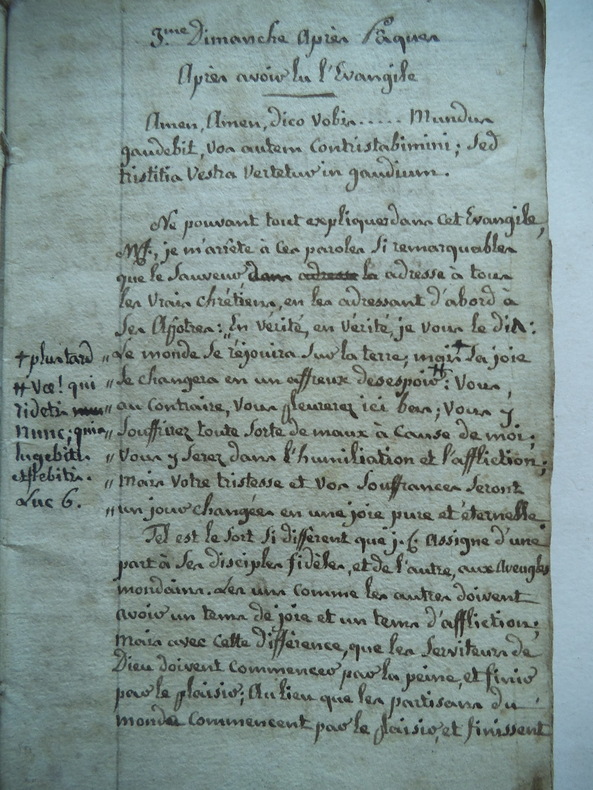 3.me Dimanche Après Pâques
Après avoir lu l'Evangile
Amen, Amen, dico vobis...... Mundus
gaudebit, vos autem Contristabimini; Sed
tristitia Vestra Vertetur in gaudium.
Ne pouvant tout expliquer dans cet Evangile,
M.f., je m'arrête à ces paroles si remarquables
que le Sauveur dans adresse la adresse à tous
les vrais chrétiens, en les adressant d'abord à
Ses Apôtres: "En vérité, en vérité, je vous le dis:
"Le monde se réjouira sur la terre; mais + Sa joie
"Se changera en un affreux desespoir ++: Vous,
"au Contraire, Vous pleurerez ici bas; Vous y
"Souffrirez toute Sorte de maux à Cause de moi;
"Vous y Serez dans l'humiliation et l'affliction;
"Mais Votre tristesse et vos Souffrances Seront
"un jour changées en une joie pure et éternelle.
Tel est le Sort si différent que j. C. Assigne d'une
part à Ses disciples fidèles, et de l'autre, aux Aveugles
mondains. Les uns comme les autres doivent
avoir un tems de joie et un tems d'affliction;
Mais avec Cette différence, que les Serviteurs de
Dieu doivent Commencer par la peine, et finir
par le plaisir; Au lieu que les partisans du
monde Commencent par le plaisir, et finissent
+ plus tard
++ Vae! qui
ridetis
nunc, quia
lugebitis
et flebitis.
Luc 6.